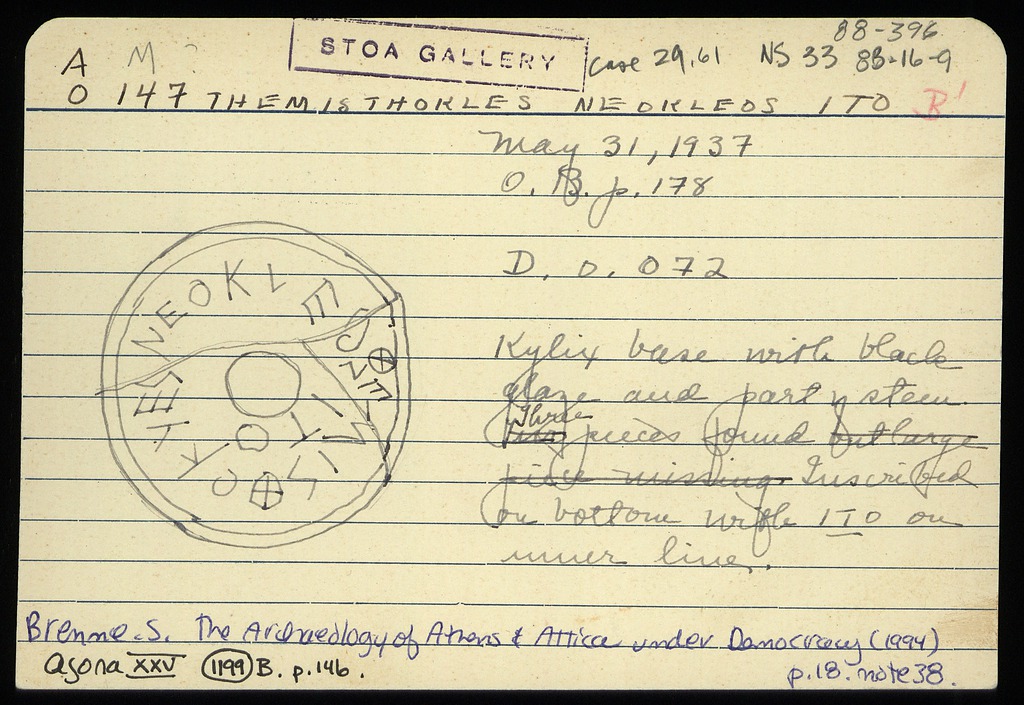 88-396
A M STOA GALLERY case 29.61 NS 33 88-16-9
O 147 THEMISTHOKLES NEOKLEOS ITO B'
May 31, 1937
O. B. p. 178
D. 0.072
Kylix base with black
glaze and part of stem.
Three pieces found but large
piece missing. Inscribed
on bottom with ITO on
inner line.
NEOKLE
Brenne. S. The Archaeology of Athens & Attica under Democracy (1994)
p.18. note 38.
Agora XXV 1199 B. p. 146.